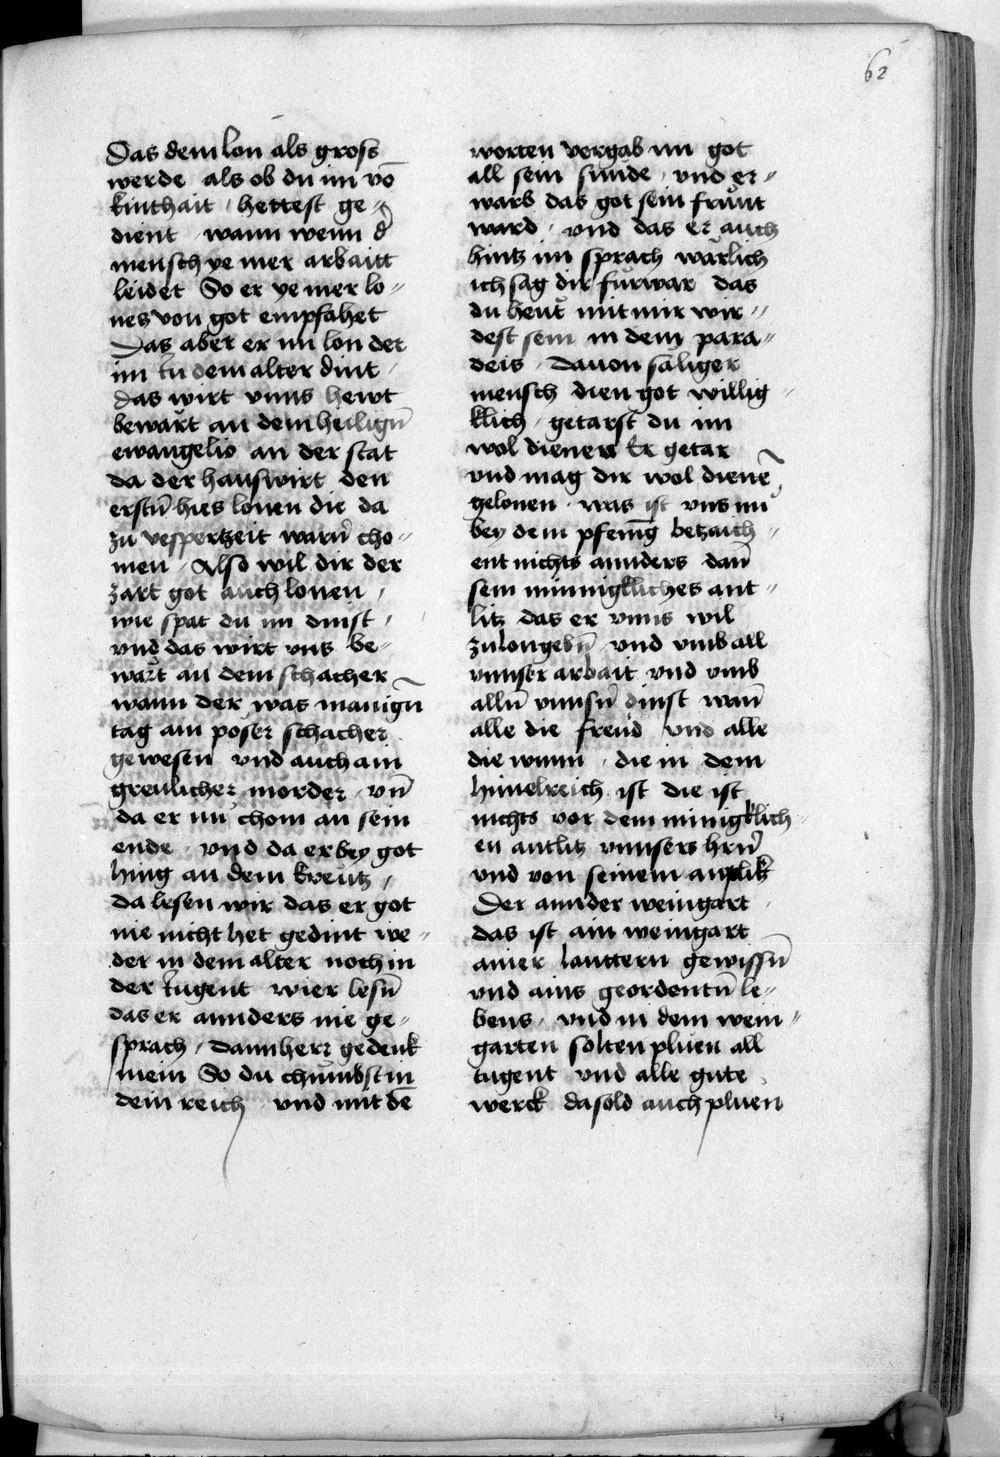 62
Das dem lon als gross
werde als ob du im vō
kinthait / hettest ge-
dient / wann wenn d'
mensch ye mer arbaitt
leidet So er ye mer lo-
nes von got empfahet
Das aber er im lon der
im in dem alter dint /
das wirt vnns hewt
bewart an dem heilign̄
ewangelio an der stat
da der hauswirt den
erstn̄ hies lonen die da
zu vespertzeit warn̄ cho-
men / Also wil dir der
zart got auch lonen /
wie spat du im dinst /
vnd das wirt vns be-
wart an dem schacher
wann der was manign̄
tag ain poser schacher
gewesen vnd auch ain
greulicher morder / vn̄
da er nu chom an sein
ende / vnd da er bey got
hing an dem kreutz /
da lesen wir das er got
nie nicht het gedint we-
der in dem alter noch in
der iugent wier lesn̄
das er annders nie ge-
sprach / dann herr gedenk
mein So du chumbst in
dein reich vnd mit dē
worten vergab im got
all sein sunde / vnd er-
warb das got sein frunt
ward / vnd das er auch
hintz im sprach warlich
ich sag dir furwar das
du heut mit mir wir-
dest sein in dem para-
deis / dauon saliger
mensch dien got willig-
klich / getarst du im
wol dienen Er getar
vnd mag dir wol dienē
gelonen / was ist vns nu
bey dem pfenīg betzaich-
ent nichts annders dan̄
sein minnigkliches ant-
litz das er vnns wil
zu lon gebn̄ vnd vmb all
vnnser arbait vnd vmb
alln̄ vnnsn̄ dinst wan̄
alle die freud vnd alle
die wunn / die in dem
himelreich ist die ist
nichts vor dem minigklich-
en antlitz vnnsers hrn̄
vnd von seinem anplik
Der annder weingart
das ist ain weingart
ainer lauttern gewissn̄
vnd ains geordentn̄ le-
bens / vnd in dem wein-
garten solten pluen all
tugent vnd alle gute
werck da sold auch pluen